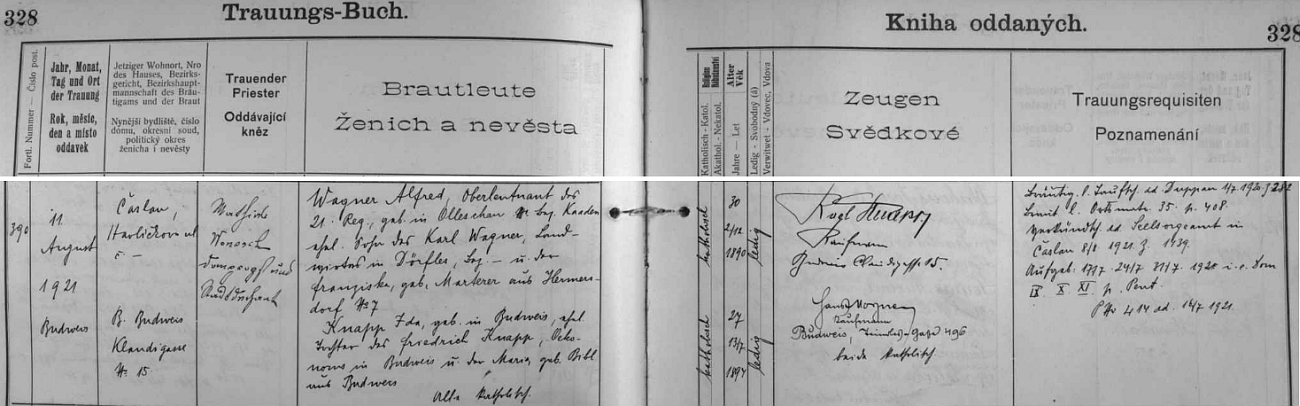 328
Trauungs-Buch.
Kniha oddaných.
328
Fortl. Nummer — Číslo post.
Jahr, Monat,
Tag und Ort
der Trauung
Rok, měsíc,
den a místo
oddavek
Jetziger Wohnort, Nro
des Hauses, Bezirks-
gericht, Bezirkshaupt-
mannschaft des Bräu-
tigams und der Braut
Nynější bydliště, číslo
domu, okresní soud,
politický okres
ženicha i nevěsty
Trauender
Priester
Oddávající
kněz
Brautleute
Ženich a nevěsta
Katholisch - Katol.
Akathol. - Nekatol.
Alter
Věk
Jahre — Let
Ledig - Svobodný (á)
Verwitwet - Vdovec, Vdova
Zeugen
Svědkové
Trauungsrequisiten
Poznamenání
390
11
August
1921
Budweis
Časlau,
Havlíčkova ul
5 —
B. Budweis
Klaudigasse
№ 15
Mathias
Dompropst und
Stadtdechant
Wagner Alfred, Oberleutnant des
21. Reg., geb. in Olleschau № Bez. Kaaden
ehel. Sohn des Karl Wagner, Land-
wirtes in Dörfles, Bez. — u. der
Franziska, geb. Marterer aus Hermers-
dorf № 7
Knapp Ida, geb. in Budweis, ehel
Tochter des Friedrich Knapp, Oeko-
noms in Budweis u. der Maria, geb.
aus Budweis
Alle katholisch.
katholisch
30
1890
ledig
katholisch
27
13/7
1894
ledig
Kaufmann
Budweis 15.
Kaufmann
Budweis, 496
beide katholisch.
Bräutig. l. Taufsch. ad Duppau 4/7 1921 J
Braut l. Ortsmatr. 35. p. 408.
Verkündsch. ad Seelsorgeamt in
Časlau 8/8 1921 Z. 1939.
Aufgeb. 17/7 24/7 31/7 1921 i. e. Dom
IX X XI p. Pent.
414 ad. 14/7 1921.